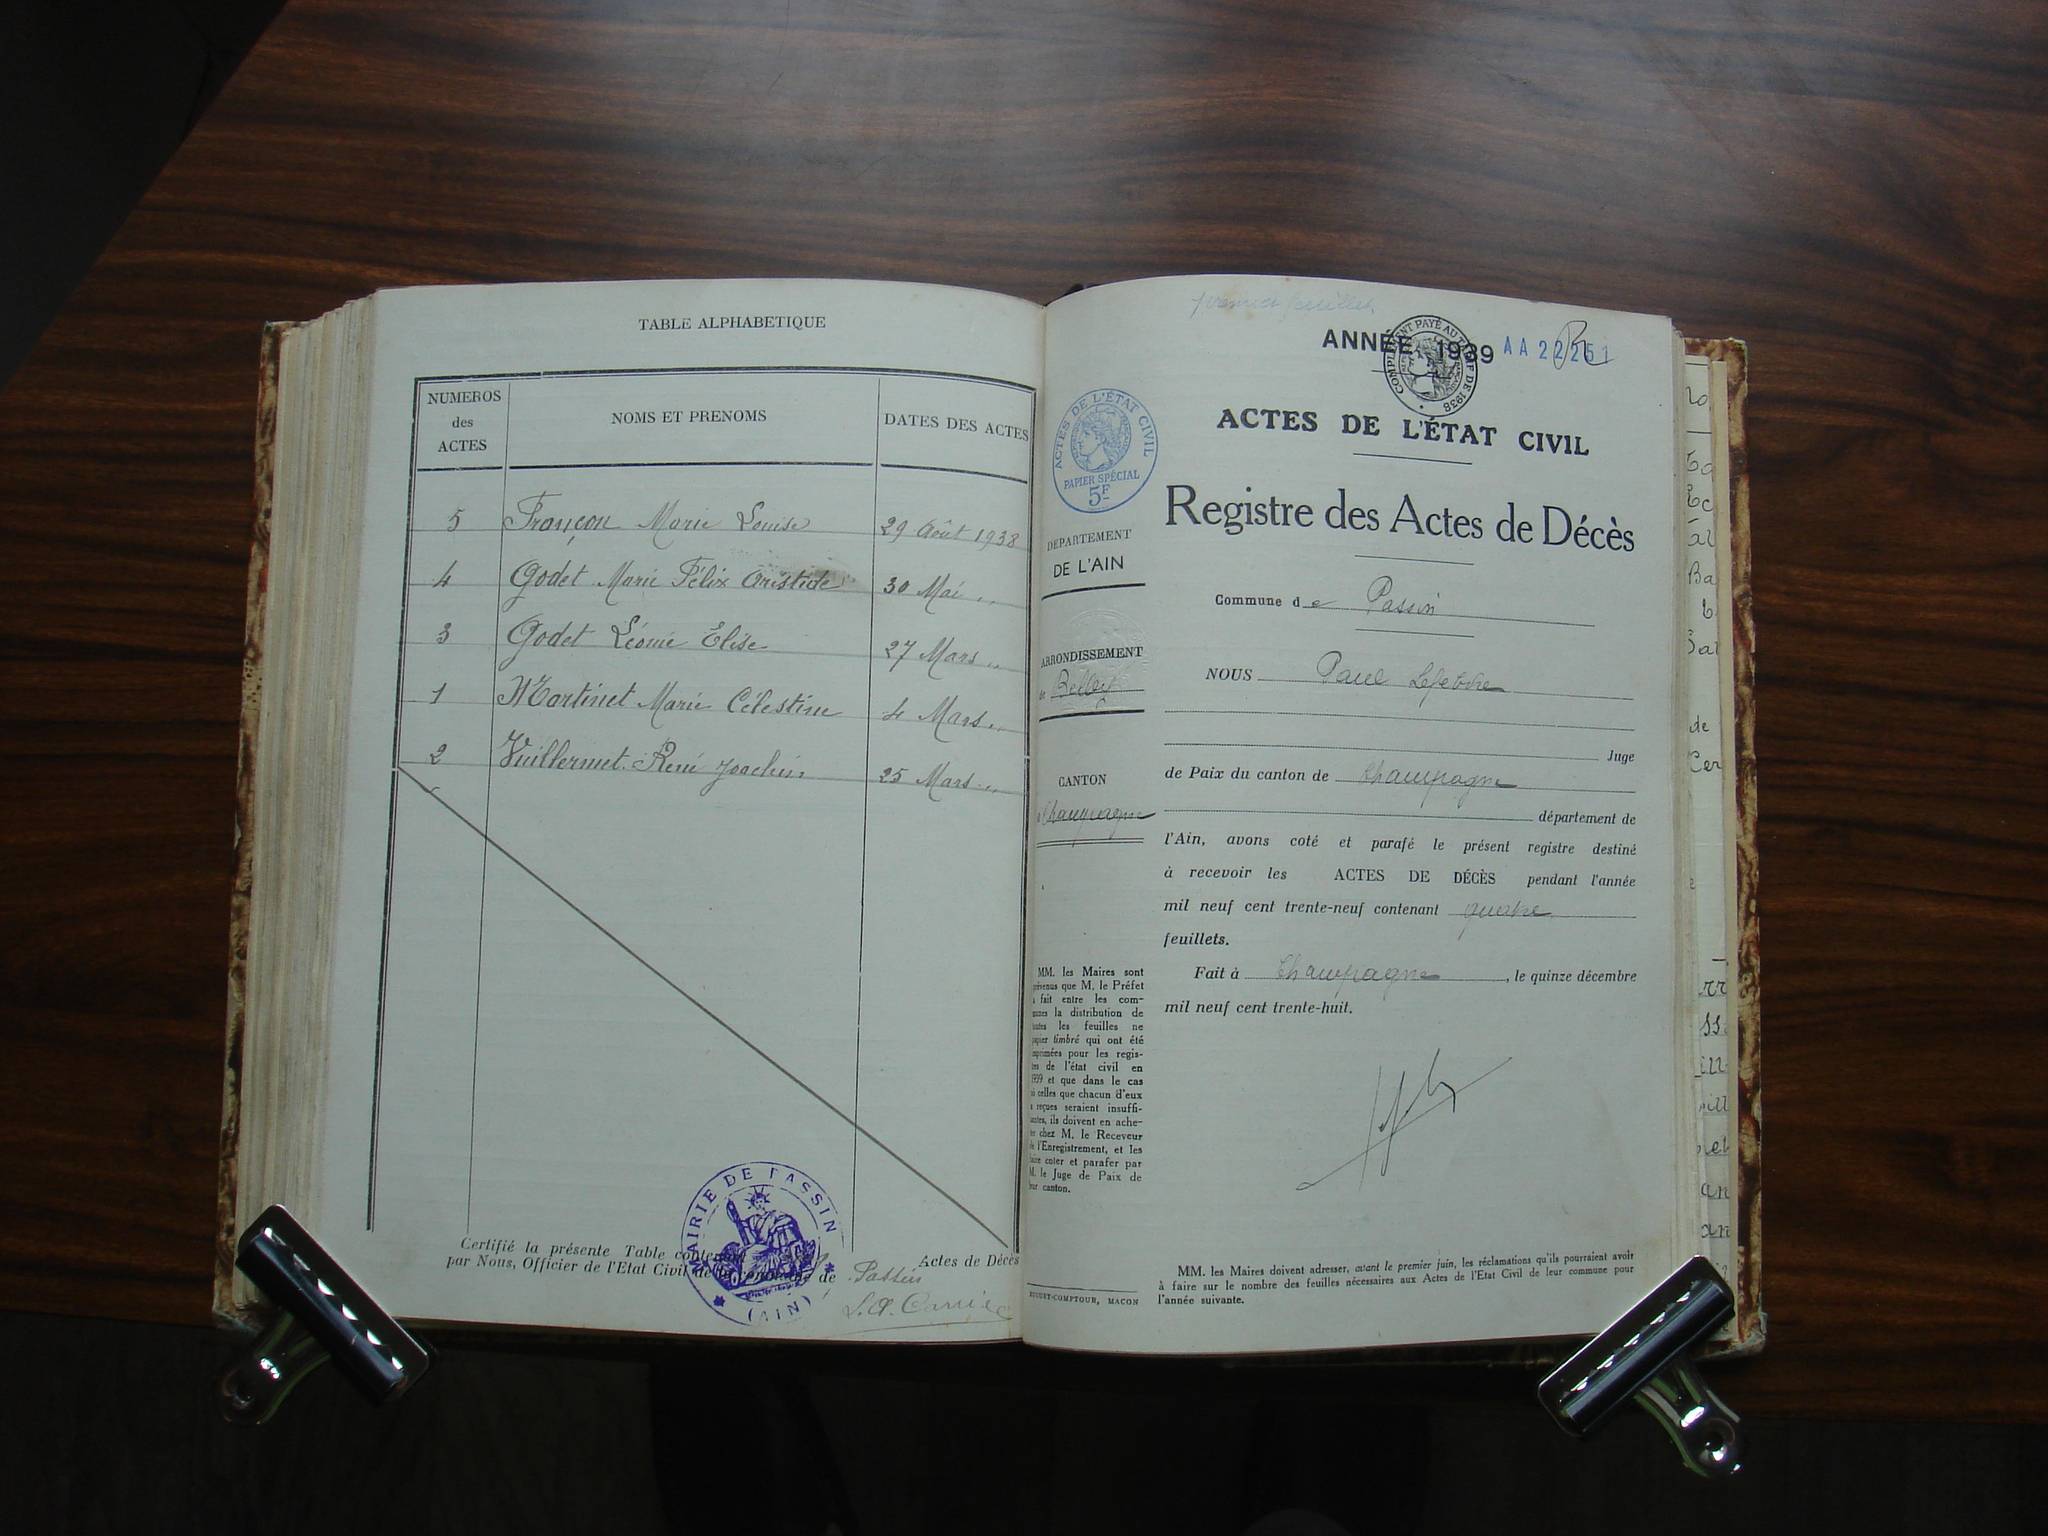 TABLE ALPHABETIQUE
NUMEROS des ACTES
NOMS ET PRENOMS
DATES DES ACTES
5 Françon Marie Louise 29 Août 1938
4 Godet Marie Félix Aristide 30 Mai "
3 Godet Léonie Elise 27 Mars "
1 Martinet Marie Célestine 4 Mars "
2 Vuillermet René Joachim 25 Mars "
Certifié la présente Table Actes de Décès
par Nous, Officier de l'Etat Civil de la commune de Passin
MAIRIE DE PASSIN
(AIN)
premier feuillet
ANNÉE 1939 AA 22251
COMPLEMENT PAYÉ AU TARIF DE 1938
ACTES DE L'ÉTAT CIVIL
PAPIER SPÉCIAL
5F
ACTES DE L'ÉTAT CIVIL
Registre des Actes de Décès
DÉPARTEMENT
DE L'AIN
Commune de Passin
ARRONDISSEMENT
de Belley
CANTON
Champagne
NOUS Paul Lefebvre
Juge
de Paix du canton de Champagne
département de
l'Ain, avons coté et parafé le présent registre destiné
à recevoir les ACTES DE DÉCÈS pendant l'année
mil neuf cent trente-neuf contenant quatre
feuillets.
Fait à Champagne, le quinze décembre
mil neuf cent trente-huit.
MM. les Maires sont
prévenus que M. le Préfet
a fait entre les com-
munes la distribution de
toutes les feuilles ne
papier timbré qui ont été
imprimées pour les regis-
tres de l'état civil en
1939 et que dans le cas
où celles que chacun d'eux
a reçues seraient insuffi-
santes, ils doivent en ache-
ter chez M. le Receveur
de l'Enregistrement, et les
faire coter et parafer par
M. le Juge de Paix de
leur canton.
BUGUET-COMPTOUR, MACON
MM. les Maires doivent adresser, avant le premier juin, les réclamations qu'ils pourraient avoir
à faire sur le nombre des feuilles nécessaires aux Actes de l'Etat Civil de leur commune pour
l'année suivante.